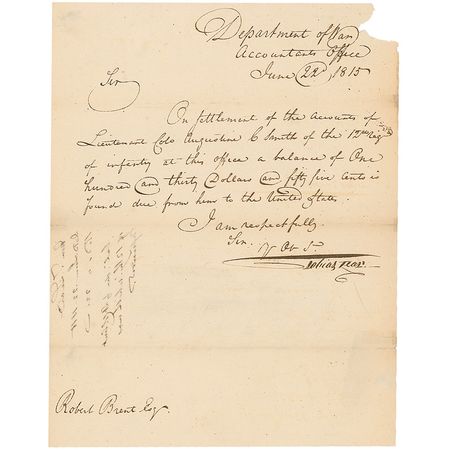 Department of War
Accountants Office
June 22d, 1815
Sir
On settlement of the accounts of
Lieutenant Colo Augustine C Smith of the Reg
of infantry at this office a balance of One
hundred and thirty Dollars and fifty five Cents is
found due from him to the United States.
I am respectfully
Sir,
Yr Ob S.
Tobias Lear
Robert Brent Esq.